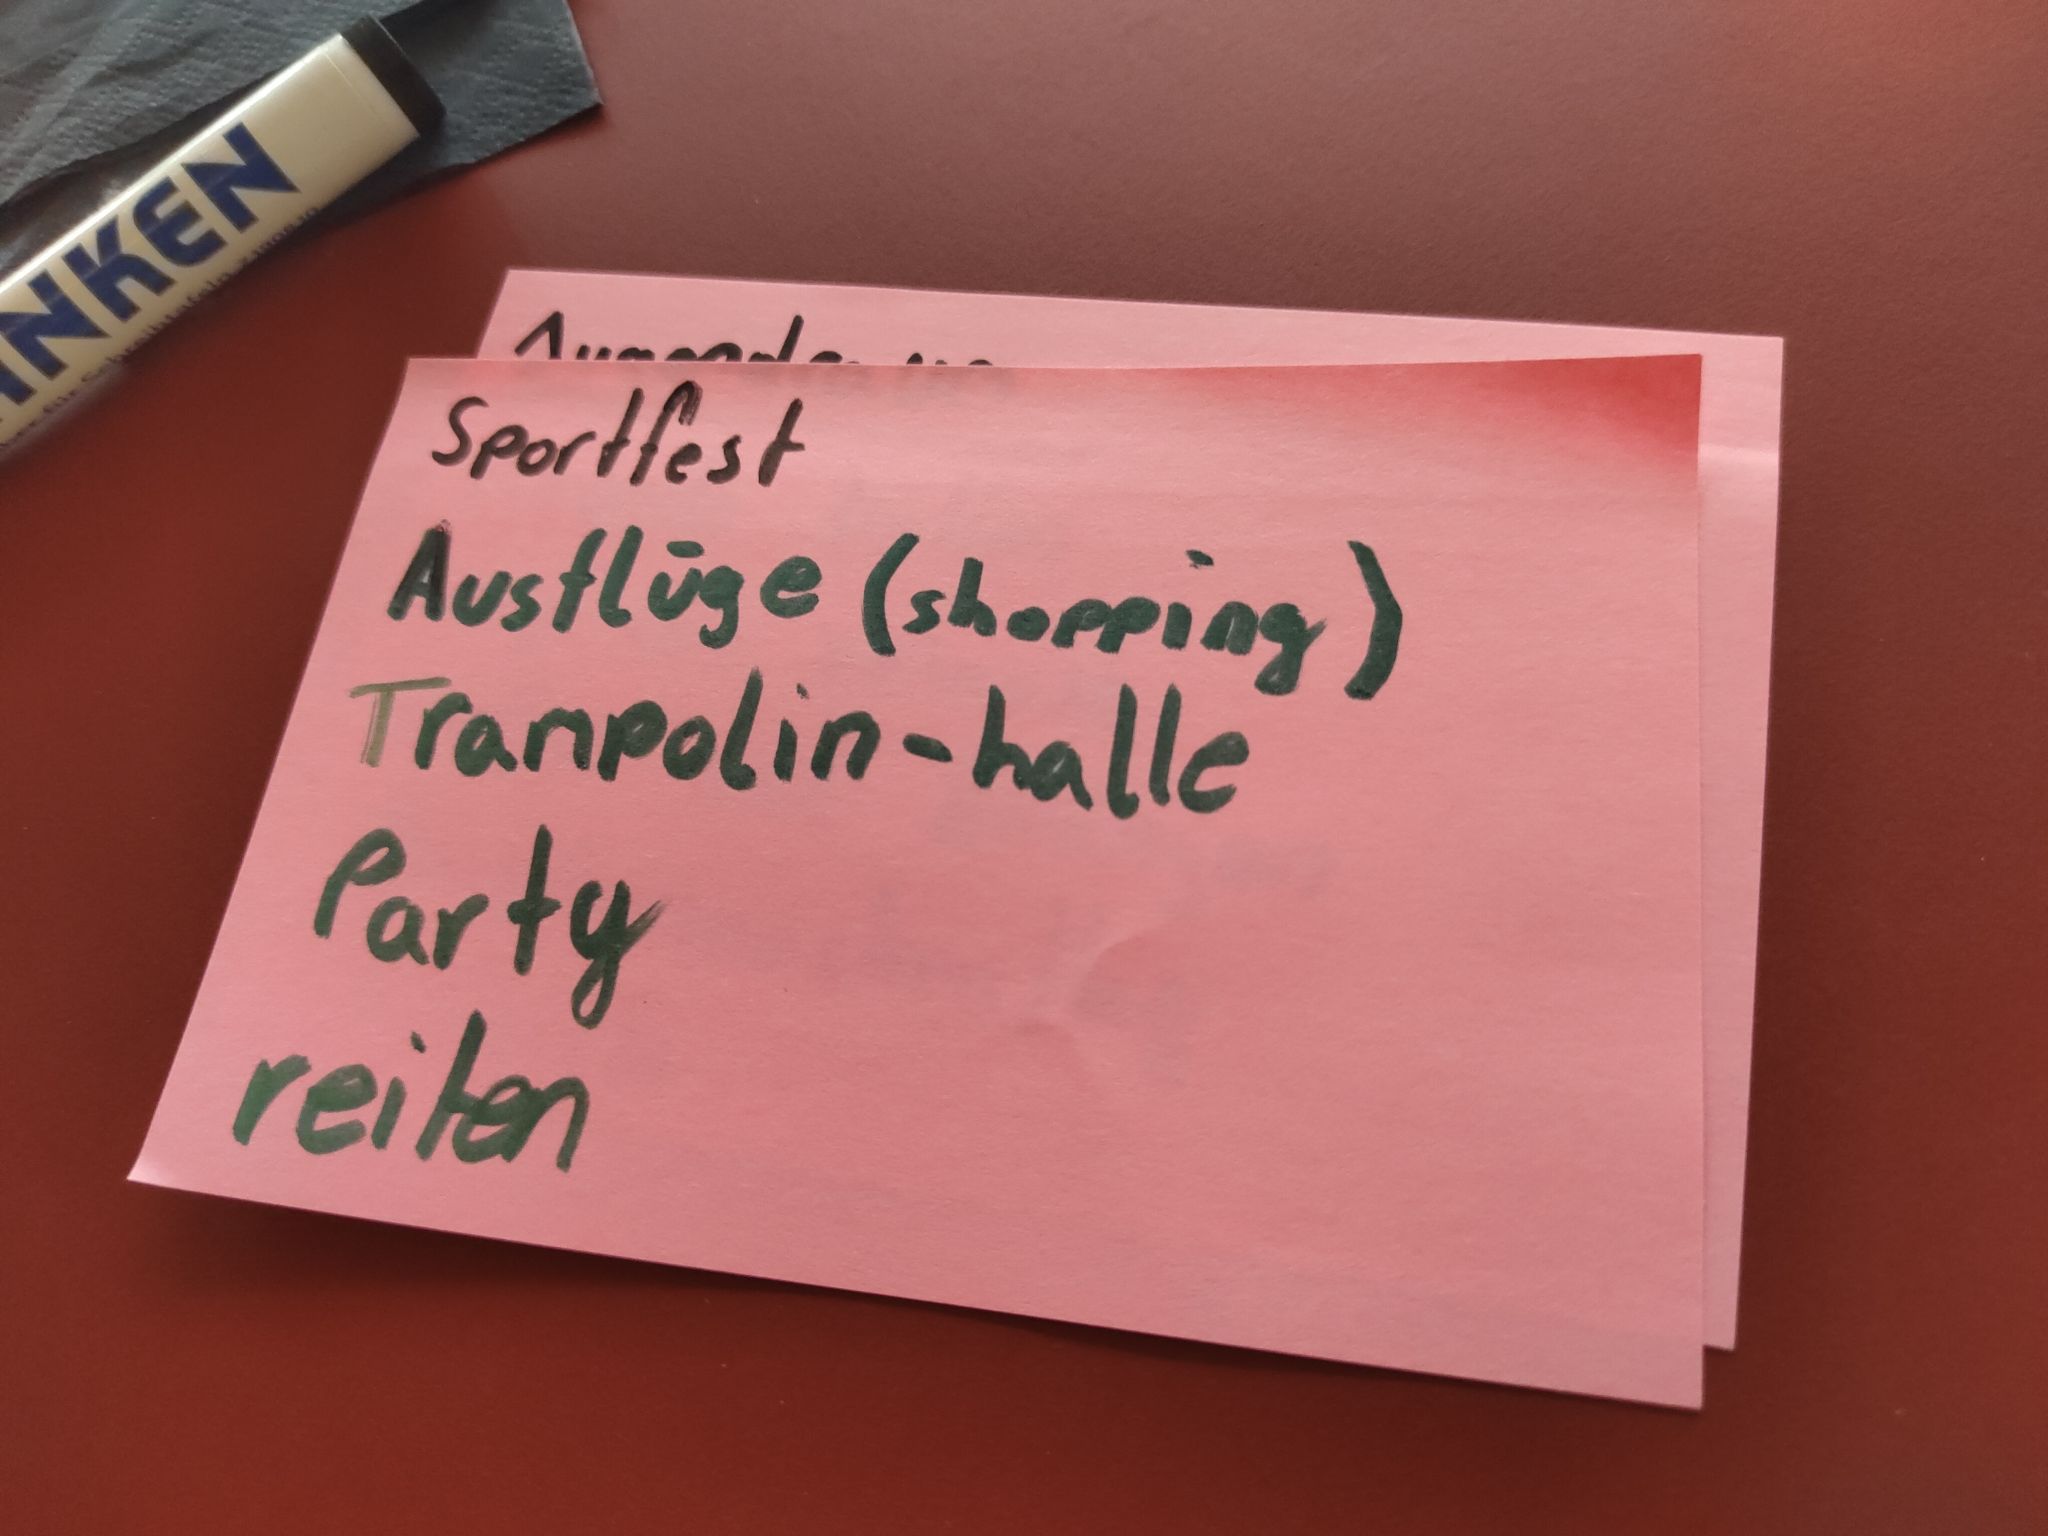 Sportfest
Ausflüge (shopping)
Trampolin-halle
Party
reiten